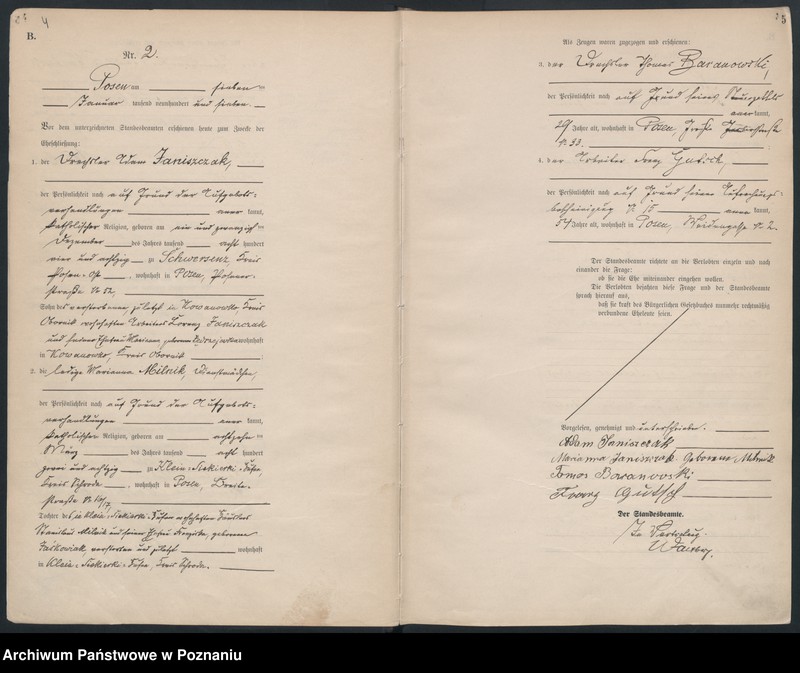 4
B.
Nr. 2.
Posen am sieben
Januar tausend neunhundert und sieben.
Vor dem unterzeichneten Standesbeamten erschienen heute zum Zwecke der
Eheschließung:
1. der Drechsler Adam Janiszczak,
der Persönlichkeit nach auf Grund der Aufgebots-
verhandlungen anerkannt,
katholischer Religion, geboren am ein und zwanzigsten
Dezember des Jahres tausend acht hundert
vier und achtzig zu Schwersenz Kreis
Posen-Ost, wohnhaft in Posen, Posener-
straße Nr
Sohn des verstorbenen, zuletzt in Kowanowko Kreis
Obornik wohnhaften Arbeiters Lorenz Janiszczak
und seiner Ehefrau Marianna geborenen wohnhaft
in Kowanowko, Kreis Obornik
2. die ledige Marianna Milnik, Dienstmädchen,
der Persönlichkeit nach auf Grund der Aufgebots-
verhandlungen anerkannt,
katholischer Religion, geboren am achtzehn
März des Jahres tausend acht hundert
zwei und achtzig zu Klein-Siekierki-Hufen,
Kreis Schroda, wohnhaft in Posen, Breite-
straße Nr.
Tochter des in Klein-Siekierki-Hufen wohnhaften
Stanislaus Milnik und seiner Ehefrau Franziska, geborenen
Jaskowiak, verstorben und zuletzt wohnhaft
in Klein-Siekierki-Hufen, Kreis Schroda.
5
Als Zeugen waren zugezogen und erschienen:
3. der Drechsler Thomas Baranowski,
der Persönlichkeit nach auf Grund seines
anerkannt,
29 Jahre alt, wohnhaft in Posen, Große
Nr. 33.
4. der Arbeiter Franz Gutsch,
der Persönlichkeit nach auf Grund seiner
bescheinigung Nr. anerkannt,
54 Jahre alt, wohnhaft in Posen, Weidengasse Nr. 2.
Der Standesbeamte richtete an die Verlobten einzeln und nach
einander die Frage:
ob sie die Ehe miteinander eingehen wollen.
Die Verlobten bejahten diese Frage und der Standesbeamte
sprach hierauf aus,
daß sie kraft des Bürgerlichen Gesetzbuches nunmehr rechtmäßig
verbundene Eheleute seien.
Vorgelesen, genehmigt und unterschrieben.
Adam Janiszczak
Marianna Janiszczak geborene Milnik
Tomos Baranowski
Franz Gutsch
Der Standesbeamte.
In Vertretung.
Archiwum Państwowe w Poznaniu